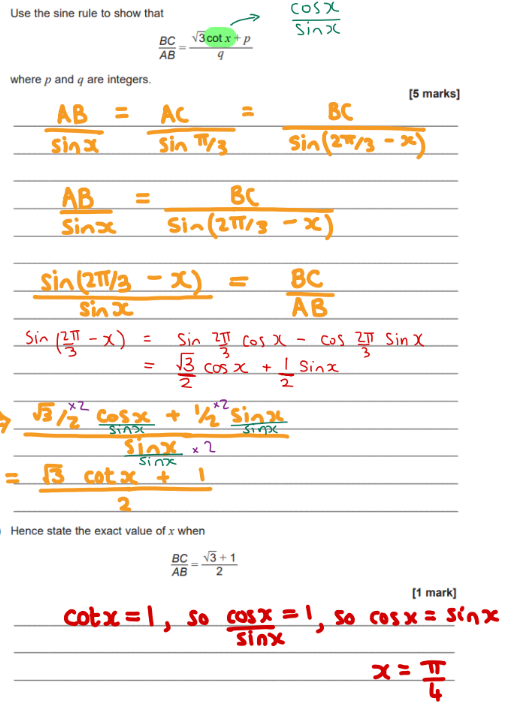 Use the sine rule to show that
cos x / sin x
BC/AB = (√3 cot x + p)/q
where p and q are integers.
[5 marks]
AB/sin x = AC/sin π/3 = BC/sin(2π/3 - x)
AB/sin x = BC/sin(2π/3 - x)
sin(2π/3 - x)/sin x = BC/AB
sin(2π/3 - x) = sin 2π/3 cos x - cos 2π/3 sin x
= √3/2 cos x + 1/2 sin x
(√3/2 ×2 cos x/sin x + 1/2 ×2 sin x/sin x)/(sin x/sin x ×2)
= (√3 cot x + 1)/2
Hence state the exact value of x when
BC/AB = (√3 + 1)/2
[1 mark]
cot x = 1, so cos x/sin x = 1, so cos x = sin x
x = π/4